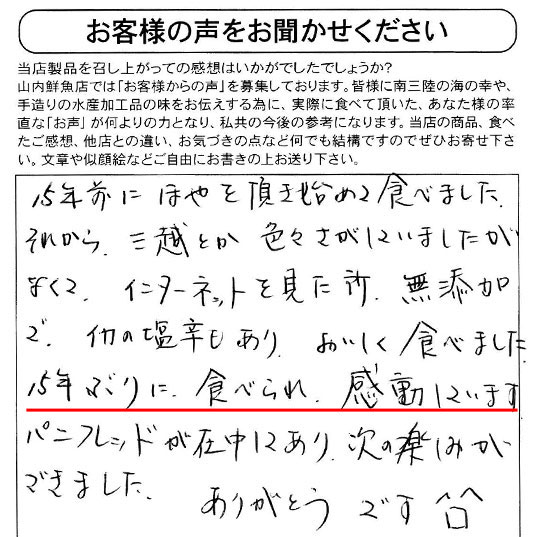 お客様の声をお聞かせください
当店製品を召し上がっての感想はいかがでしたでしょうか?
山内鮮魚店では「お客様からの声」を募集しております。皆様に南三陸の海の幸や、
手造りの水産加工品の味をお伝えする為に、実際に食べて頂いた、あなた様の率
直な「お声」が何よりの力となり、私共の今後の参考になります。当店の商品、食べ
たご感想、他店との違い、お気づきの点など何でも結構ですのでぜひお寄せ下さ
い。文章や似顔絵などご自由にお書きの上お送り下さい。
15年前にほやを頂き始めて食べました。
それから、三越とか色々さがしていましたが
なくて、インターネットを見た所、無添加
で、イカの塩辛もあり、おいしく食べました
15年ぶりに、食べられ、感動しています
パンフレッドが在中してあり、次の楽しみが
できました。
ありがとうです